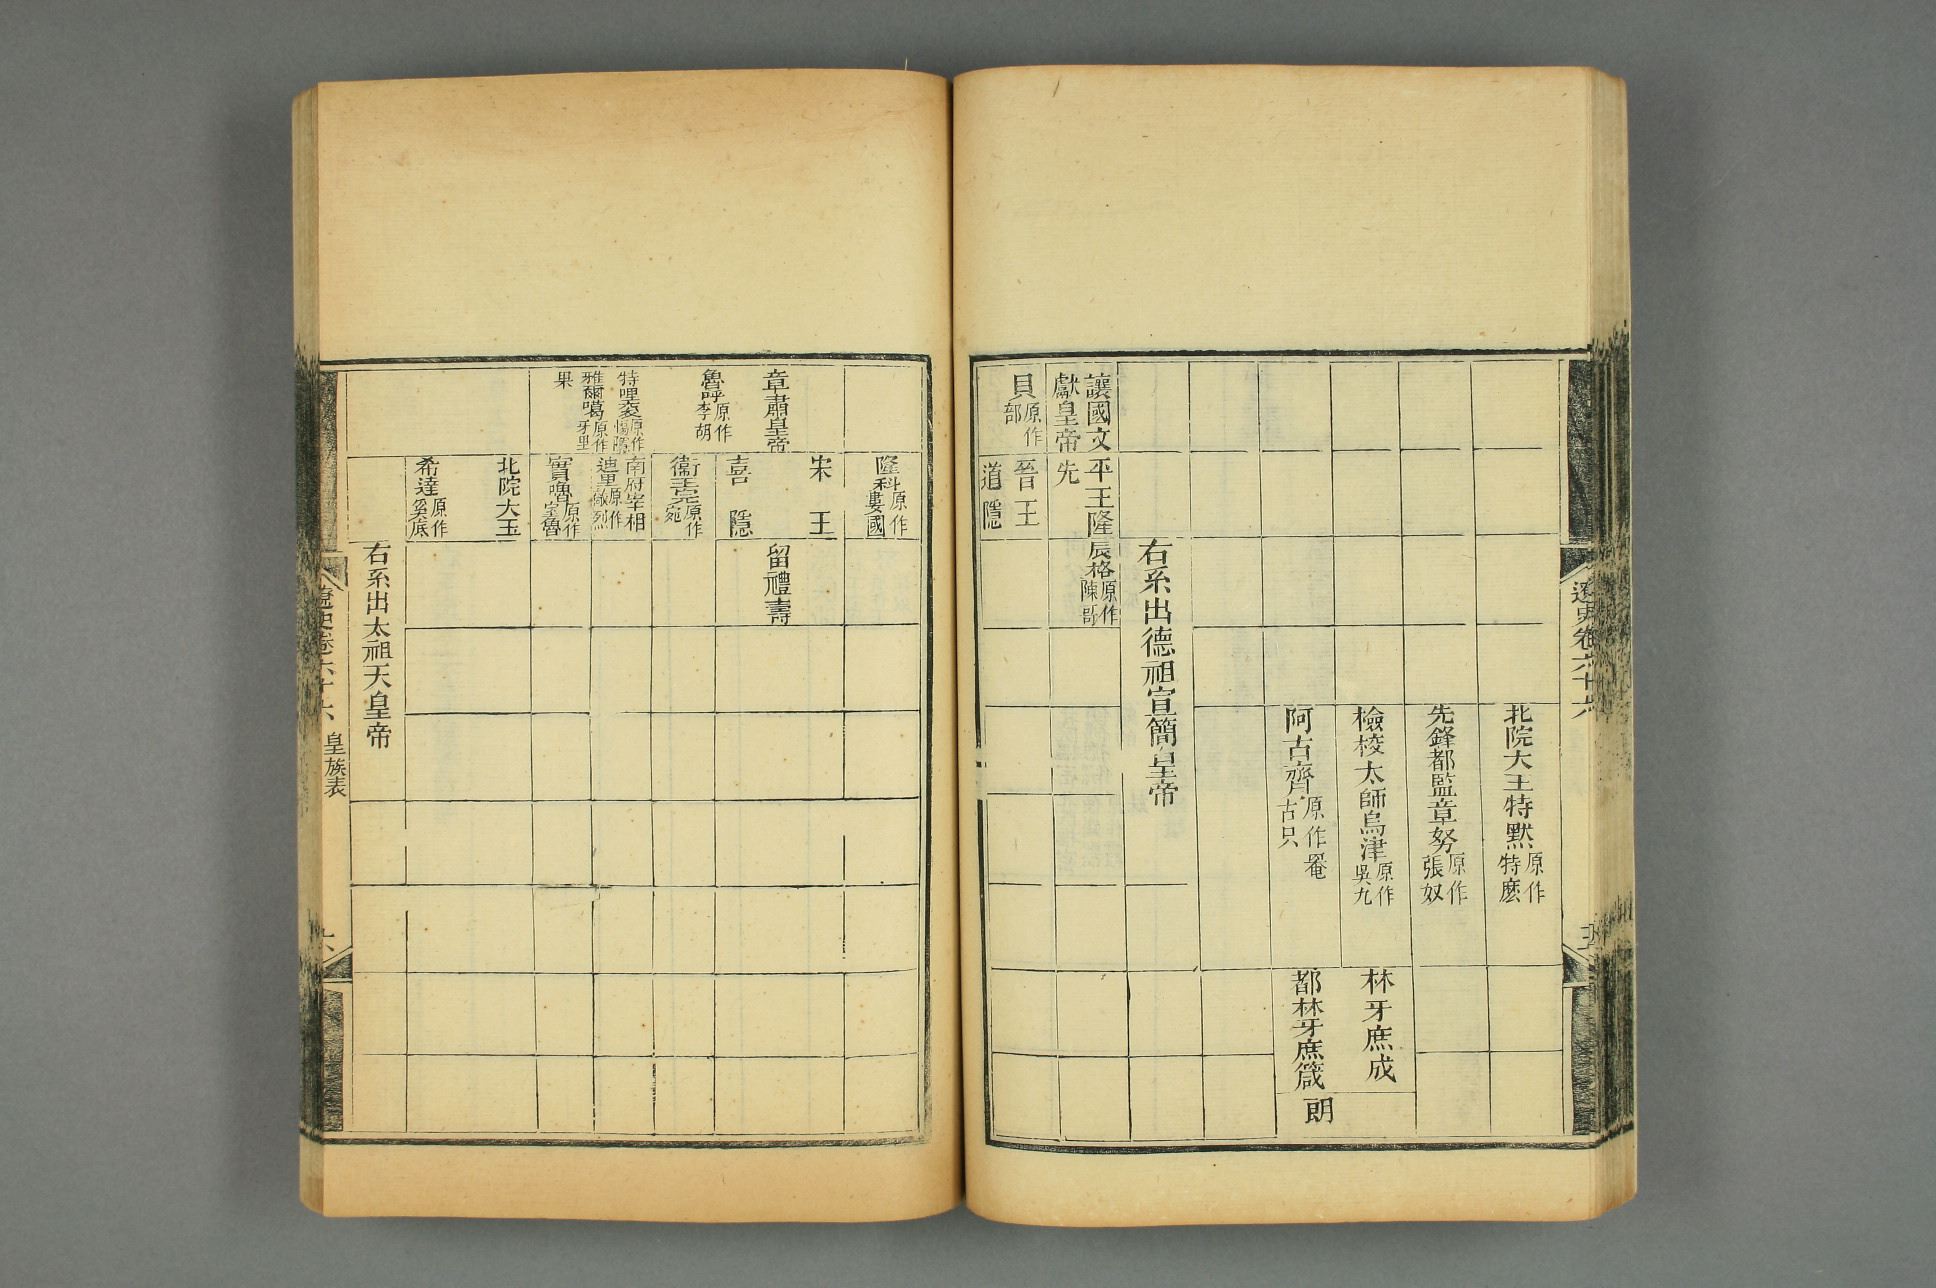 遼史卷六十六
北院大王特默原作特麽
先鋒都監章努原作張奴
檢校太師烏津原作吳九
林牙庶成
阿古齊原作罨古只
都林牙庶箴
朗
右系出德祖宣簡皇帝
讓國文獻皇帝
平王隆先
辰格原作陳哥
貝原作部
晉王道隱
隆科原作婁國
章肅皇帝魯呼原作李胡
宋王喜隱
留禮壽
衞王完原作宛
特哩袞原作惕隱
雅爾噶原作牙里果
南府宰相迪里原作敵烈
實嚕原作室魯
北院大王希達原作奚底
右系出太祖天皇帝
遼史卷六十六 皇族表 六